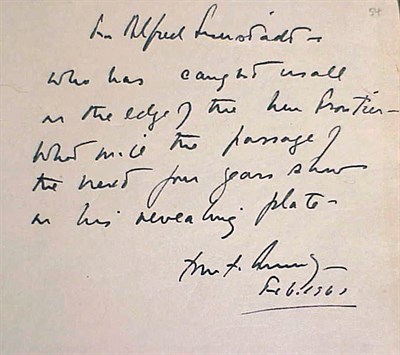 54
For Alfred Eisenstaedt -
who has caught us all
on the edge of the New Frontier -
What will the passage of
the next four years show
on his revealing plate -
John F. Kennedy -
Feb. 1961